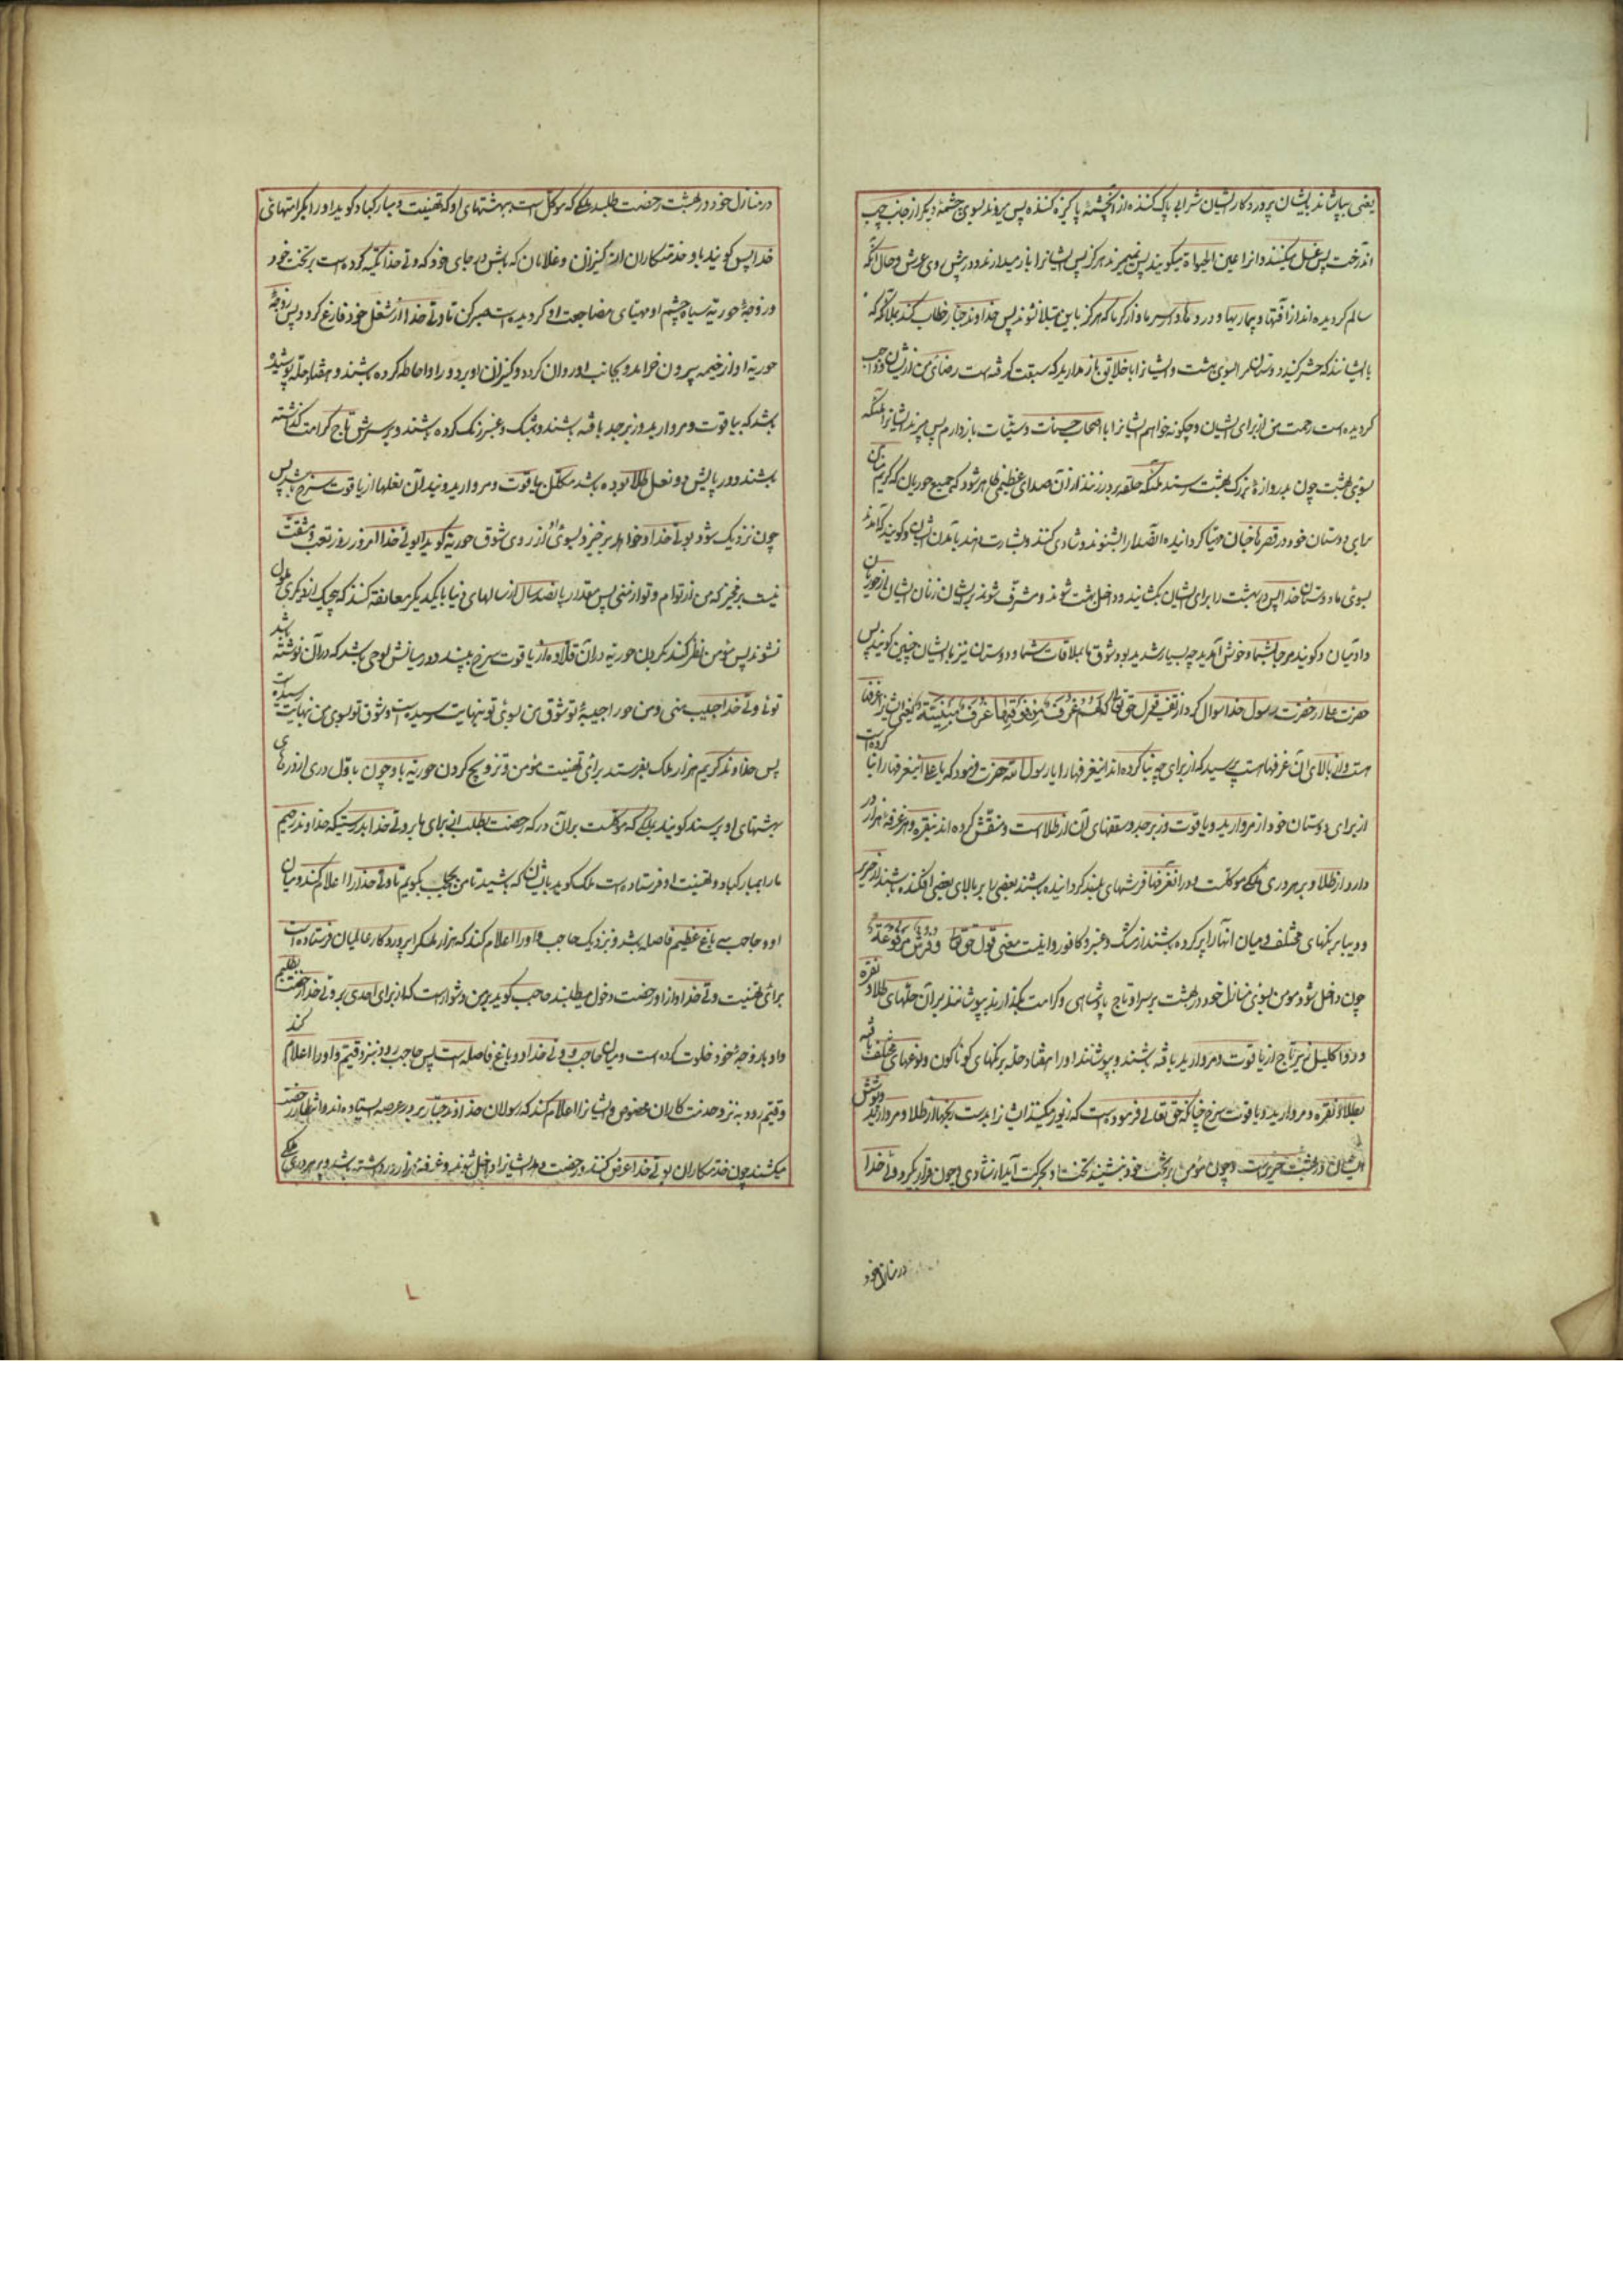 یعنی بیاشاند بایشان پروردکار ایشان شرابی پاک کننده از آنچشمهٔ پاکیزه کننده پس میروند بسوی چشمهٔ دیگر از جانب چپ
اندرخت پس غسل میکنند و آنرا عین الحیوة میکویند پس نمیمیرند هرکز پس ایشانرا باز میدارند در پیش روی عرش و حال آنکه
سالم کردیده اند از آفتها و بیماریها و دردها و سرما و از کرما که هرکز باین مبتلا نشوند پس خداوند جبار خطاب کند بملائکه که
با ایشانند که حشر کنید دوستان مرا بسوی بهشت و ایشانرا با خلایق باز مدارید که سبقت کرفته است رضای من از ایشان و واجب
کردیده است رحمت من از برای ایشان و چکونه خواهم ایشانرا با اصحاب حسنات و سیئات باز دارم پس میبرند ایشانرا ملئکه
بسوی بهشت چون بدروازهٔ بزرک بهشت رسند ملئکه حلقه بر در زنند از آن صدای عظیمی ظاهر شود که جمیع حوریان که کریم منان
برای دوستان خود در قصرها جنان مهیا کردانیده آنصدا را بشنوند و شادی کنند و بشارت دهند بآمدن ایشان و کویند که آمدند
بسوی ما دوستان خدا پس در بهشت را برای ایشان بکشایند و داخل بهشت شوند و مشرف شوند بر ایشان زنان ایشان از حوریان
و آدمیان و کویند مرحبا بشما و خوش آمدید چه بسیار شدید بود شوق ما بملاقات شما و دوستان نیز بایشان چنین کویند پس
حضرت علی از حضرت رسول خدا سوال کرد از تفسیر قول حق تعالی لهم غرف من فوقها غرف مبنیة یعنی از برای ایشان غرفها
هست و از بالای آن غرفها است پرسید که از برای چه بنا کرده اند اینغرفها را یا رسول الله حضرت فرمود که یا علی اینغرفها را بنا کرده است
از برای دوستان خود از مروارید و یاقوت و زبرجد و سقفهای آن از طلا است و منقش کرده اند بنقره و هر غرفهٔ هزار در
دارد از طلا و بر هر دری ملکی موکلست و در آنغرفها فرشهای بلند کردانیده باشند بعضی را بر بالای بعضی افکنده باشند از حریر
و دیبا برنکهای مختلف و میان آنها را پر کرده باشند از مشک و عنبر و کافور و اینست معنی قول حق تعالی وفرش مرفوعة
چون داخل شود مومن بسوی منازل خود در بهشت بر سر او تاج پادشاهی و کرامت بکذارند و بپوشانند بر آن حلهای طلا و نقره
و در اکلیل زیر تاج از یاقوت و مروارید بافته باشند و بپوشانند او را هفتاد حله برنکهای کوناکون و نوعهای مختلف بافته
بطلا و نقره و مروارید و یاقوت سرخ چنانکه حق تعالی فرموده است که زیور میکنند ایشانرا بدست رنجها از طلا و مروارید و پوشش
ایشان در بهشت حریر است و چون مؤمن بر تخت خود نشیند تخت او بحرکت آید از شادی و چون قرار کیرد ولی خدا
در منازل خود
در منازل خود در بهشت رخصت طلبد ملکی که موکل است ببهشتهای او که تهنیت و مبارکباد کوید او را بکرامتهای
خدا پس کویند باو خدمتکاران او از کنیزان و غلامان که باش در جای خود که ولی خدا تکیه کرده است بر تخت خود
و زوجهٔ حوریهٔ سیاه چشم او مهیای مضاجعت او کردیده است صبر کن تا ولی خدا از شغل خود فارغ کردد پس زوجهٔ
حوریهٔ او از خیمه بیرون خرامد و بجانب او روان کردد و کنیزان او بر دور او احاطه کرده باشند و هفتاد حله پوشیده
باشد که بیاقوت و مروارید و زبرجد بافته باشند و بمشک و عنبر رنک کرده باشند و بر سرش تاج کرامت کذاشته
باشند و در پایش دو نعل طلا بوده باشد مکلل بیاقوت و مروارید و بند آن نعلها از یاقوت سرخ باشد پس
چون نزدیک شود بولی خدا و خواهد برخیزد بسوی او از روی شوق حوریه کوید ای ولی خدا امروز روز تعب و مشقت
نیست برخیز که من از توام و تو از منی پس مقدار پانصد سال از سالهای دنیا با یکدیکر معانقه کنند که هیچیک از دیکری ملول
نشوند پس مؤمن نظر کند بکردن حوریه در آن قلاده از یاقوت سرخ بیند و در میانش لوحی باشد که در آن نوشته باشد
توئی ولی خدا حبیب منی و من حورا حبیبهٔ تو شوق من بسوی تو بنهایت رسیده است و شوق تو بسوی من بنهایت رسیده است
پس خداوند کریم هزار ملک بفرستد برای تهنیت مؤمن و تزویج کردن حوریه باو چون باول دری از درهای
بهشتهای او برسند کویند بملکی که موکلست بر آن در که رخصت بطلب از برای ما بر ولی خدا بدرستیکه خداوند رحیم
ما را بمبارکباد و تهنیت او فرستاده است ملک کوید بایشان که باشید تا من بحاجب بکویم تا ولی خدا را اعلام کند و میان
او و حاجب سه باغ عظیم فاصله باشد و بنزدیک حاجب آید و او را اعلام کند که هزار ملک را پروردکار عالمیان فرستاده است
برای تهنیت ولی خدا و از او رخصت دخول میطلبند حاجب کوید بر من دشوار است که از برای احدی بر ولی خدا رخصت بطلبم
و او با زوجهٔ خود خلوت کرده است و میان حاجب و ولی خدا دو باغ فاصله است پس حاجب رود بنزد قیم و او را اعلام کند
و قیم رود به نزد خدمتکاران مخصوص و ایشانرا اعلام کند که رسولان خداوند جبار بر در عرصه ایستاده اند و انتظار رخصت
میکشند چون خدمتکاران بولی خدا عرض کنند و رخصت دهد ایشانرا داخل شوند و غرفه هزار در داشته باشد و بر هر دری ملکی